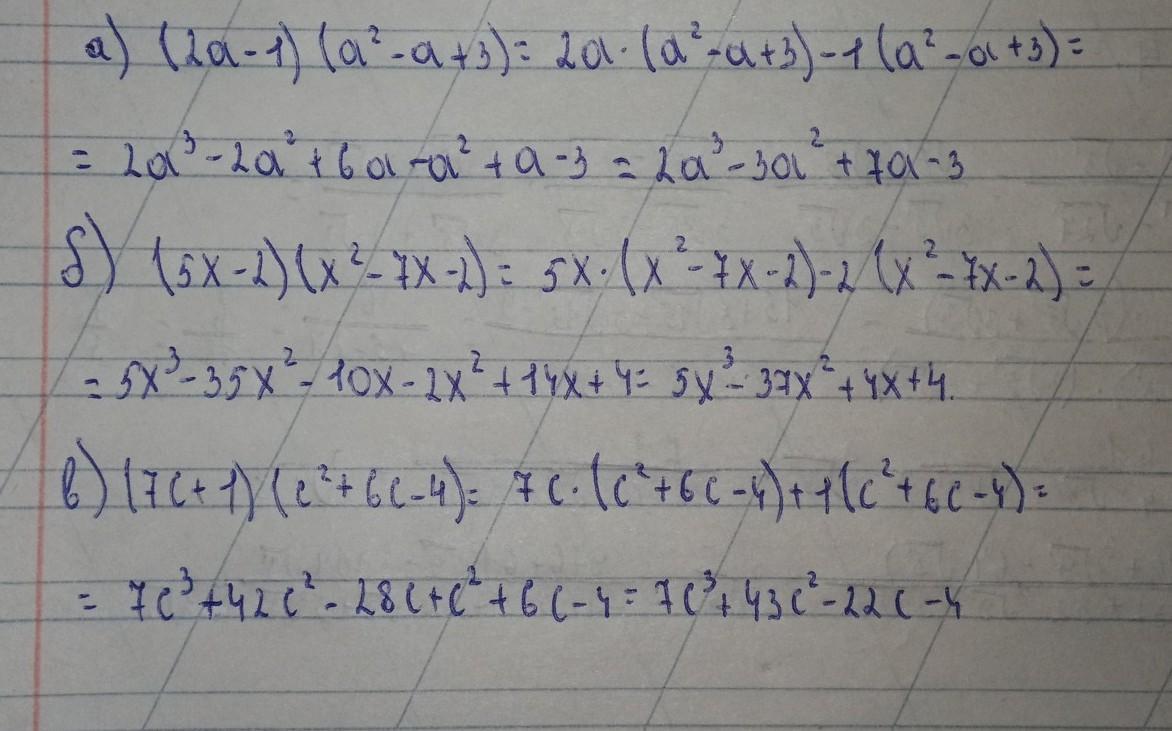 а) (2a-1)(a²-a+3)= 2a·(a²-a+3)-1(a²-a+3)=
= 2a³-2a²+6a-a²+a-3 = 2a³-3a²+7a-3
б) (5x-2)(x²-7x-2)= 5x·(x²-7x-2)-2(x²-7x-2)=
= 5x³-35x²-10x-2x²+14x+4= 5x³-37x²+4x+4.
в) (7c+1)(c²+6c-4)= 7c·(c²+6c-4)+1(c²+6c-4)=
= 7c³+42c²-28c+c²+6c-4=7c³+43c²-22c-4